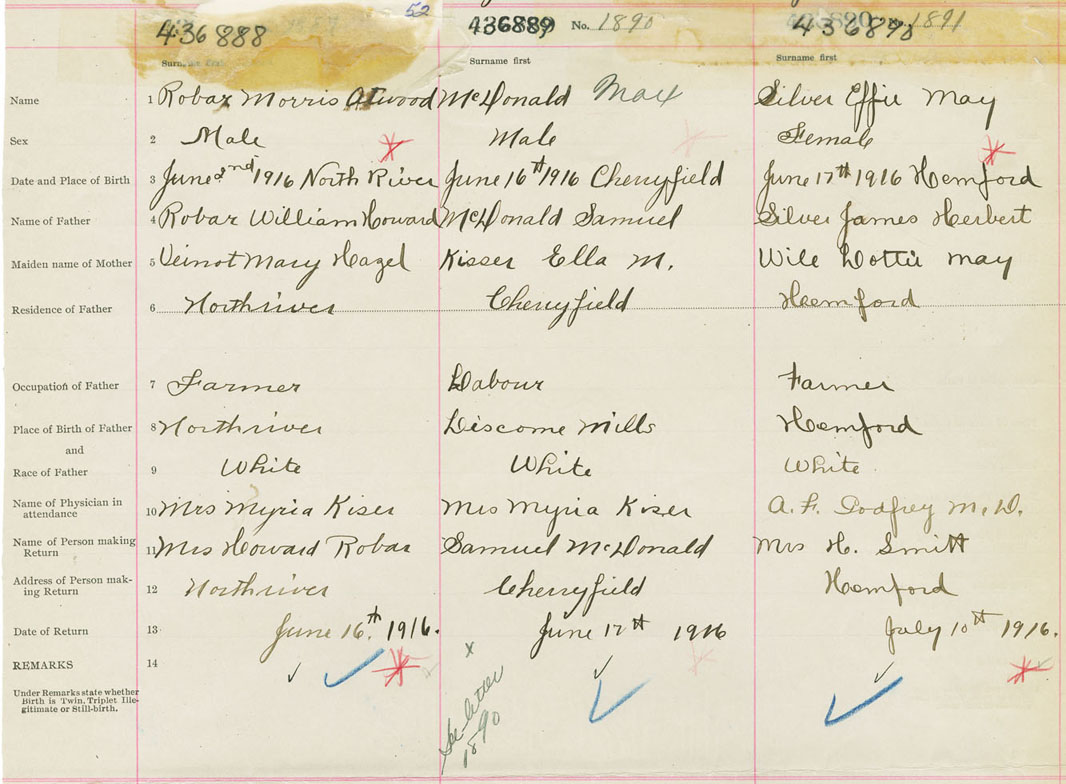 52
436888 436889 No. 1890 436890 1891
Surname first Surname first
Name 1 Robar Morris Atwood McDonald Max Silver Effie May
Sex 2 Male Male Female
Date and Place of Birth 3 June 2nd 1916 North River June 16th 1916 Cherryfield June 17th 1916 Hemford
Name of Father 4 Robar William Howard McDonald Samuel Silver James Herbert
Maiden name of Mother 5 Veinot Mary Hazel Kisser Ella M. Wile Dottie May
Residence of Father 6 Northriver Cherryfield Hemford
Occupation of Father 7 Farmer Labour Farmer
Place of Birth of Father 8 Northriver Liscome Mills Hemford
and
Race of Father 9 White White White
Name of Physician in
attendance 10 Mrs Myria Kiser Mrs Myria Kiser A. F. Godfrey M.D.
Name of Person making
Return 11 Mrs Howard Robar Samuel McDonald Mrs H. Smitt
Address of Person mak-
ing Return 12 Northriver Cherryfield Hemford
Date of Return 13 June 16th 1916. June 17th 1916 July 10th 1916.
REMARKS 14
Under Remarks state whether
Birth is Twin, Triplet Ille-
gitimate or Still-birth.
See letter
1890